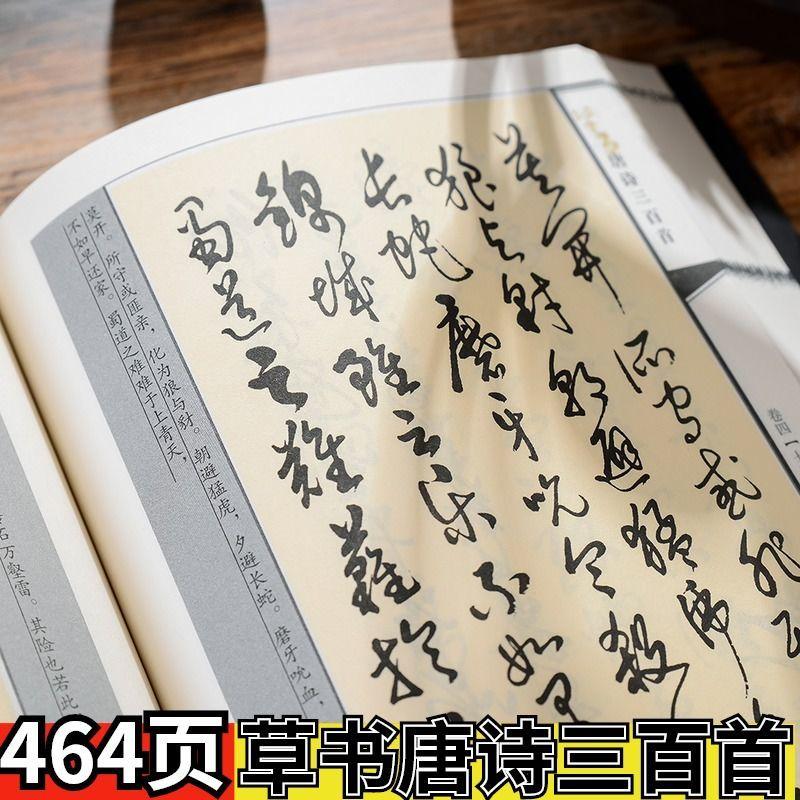 唐诗三百首
卷四
莫開所守或匪
狼与豺朝避猛虎
长蛇磨牙吮血殺
錦城雖云樂不如早
蜀道之難難於
莫开。所守或匪亲，化为狼与豺。朝避猛虎，夕避长蛇。磨牙吮血，
不如早还家。蜀道之难难于上青天，
万壑雷。其险也若此
464页 草书唐诗三百首